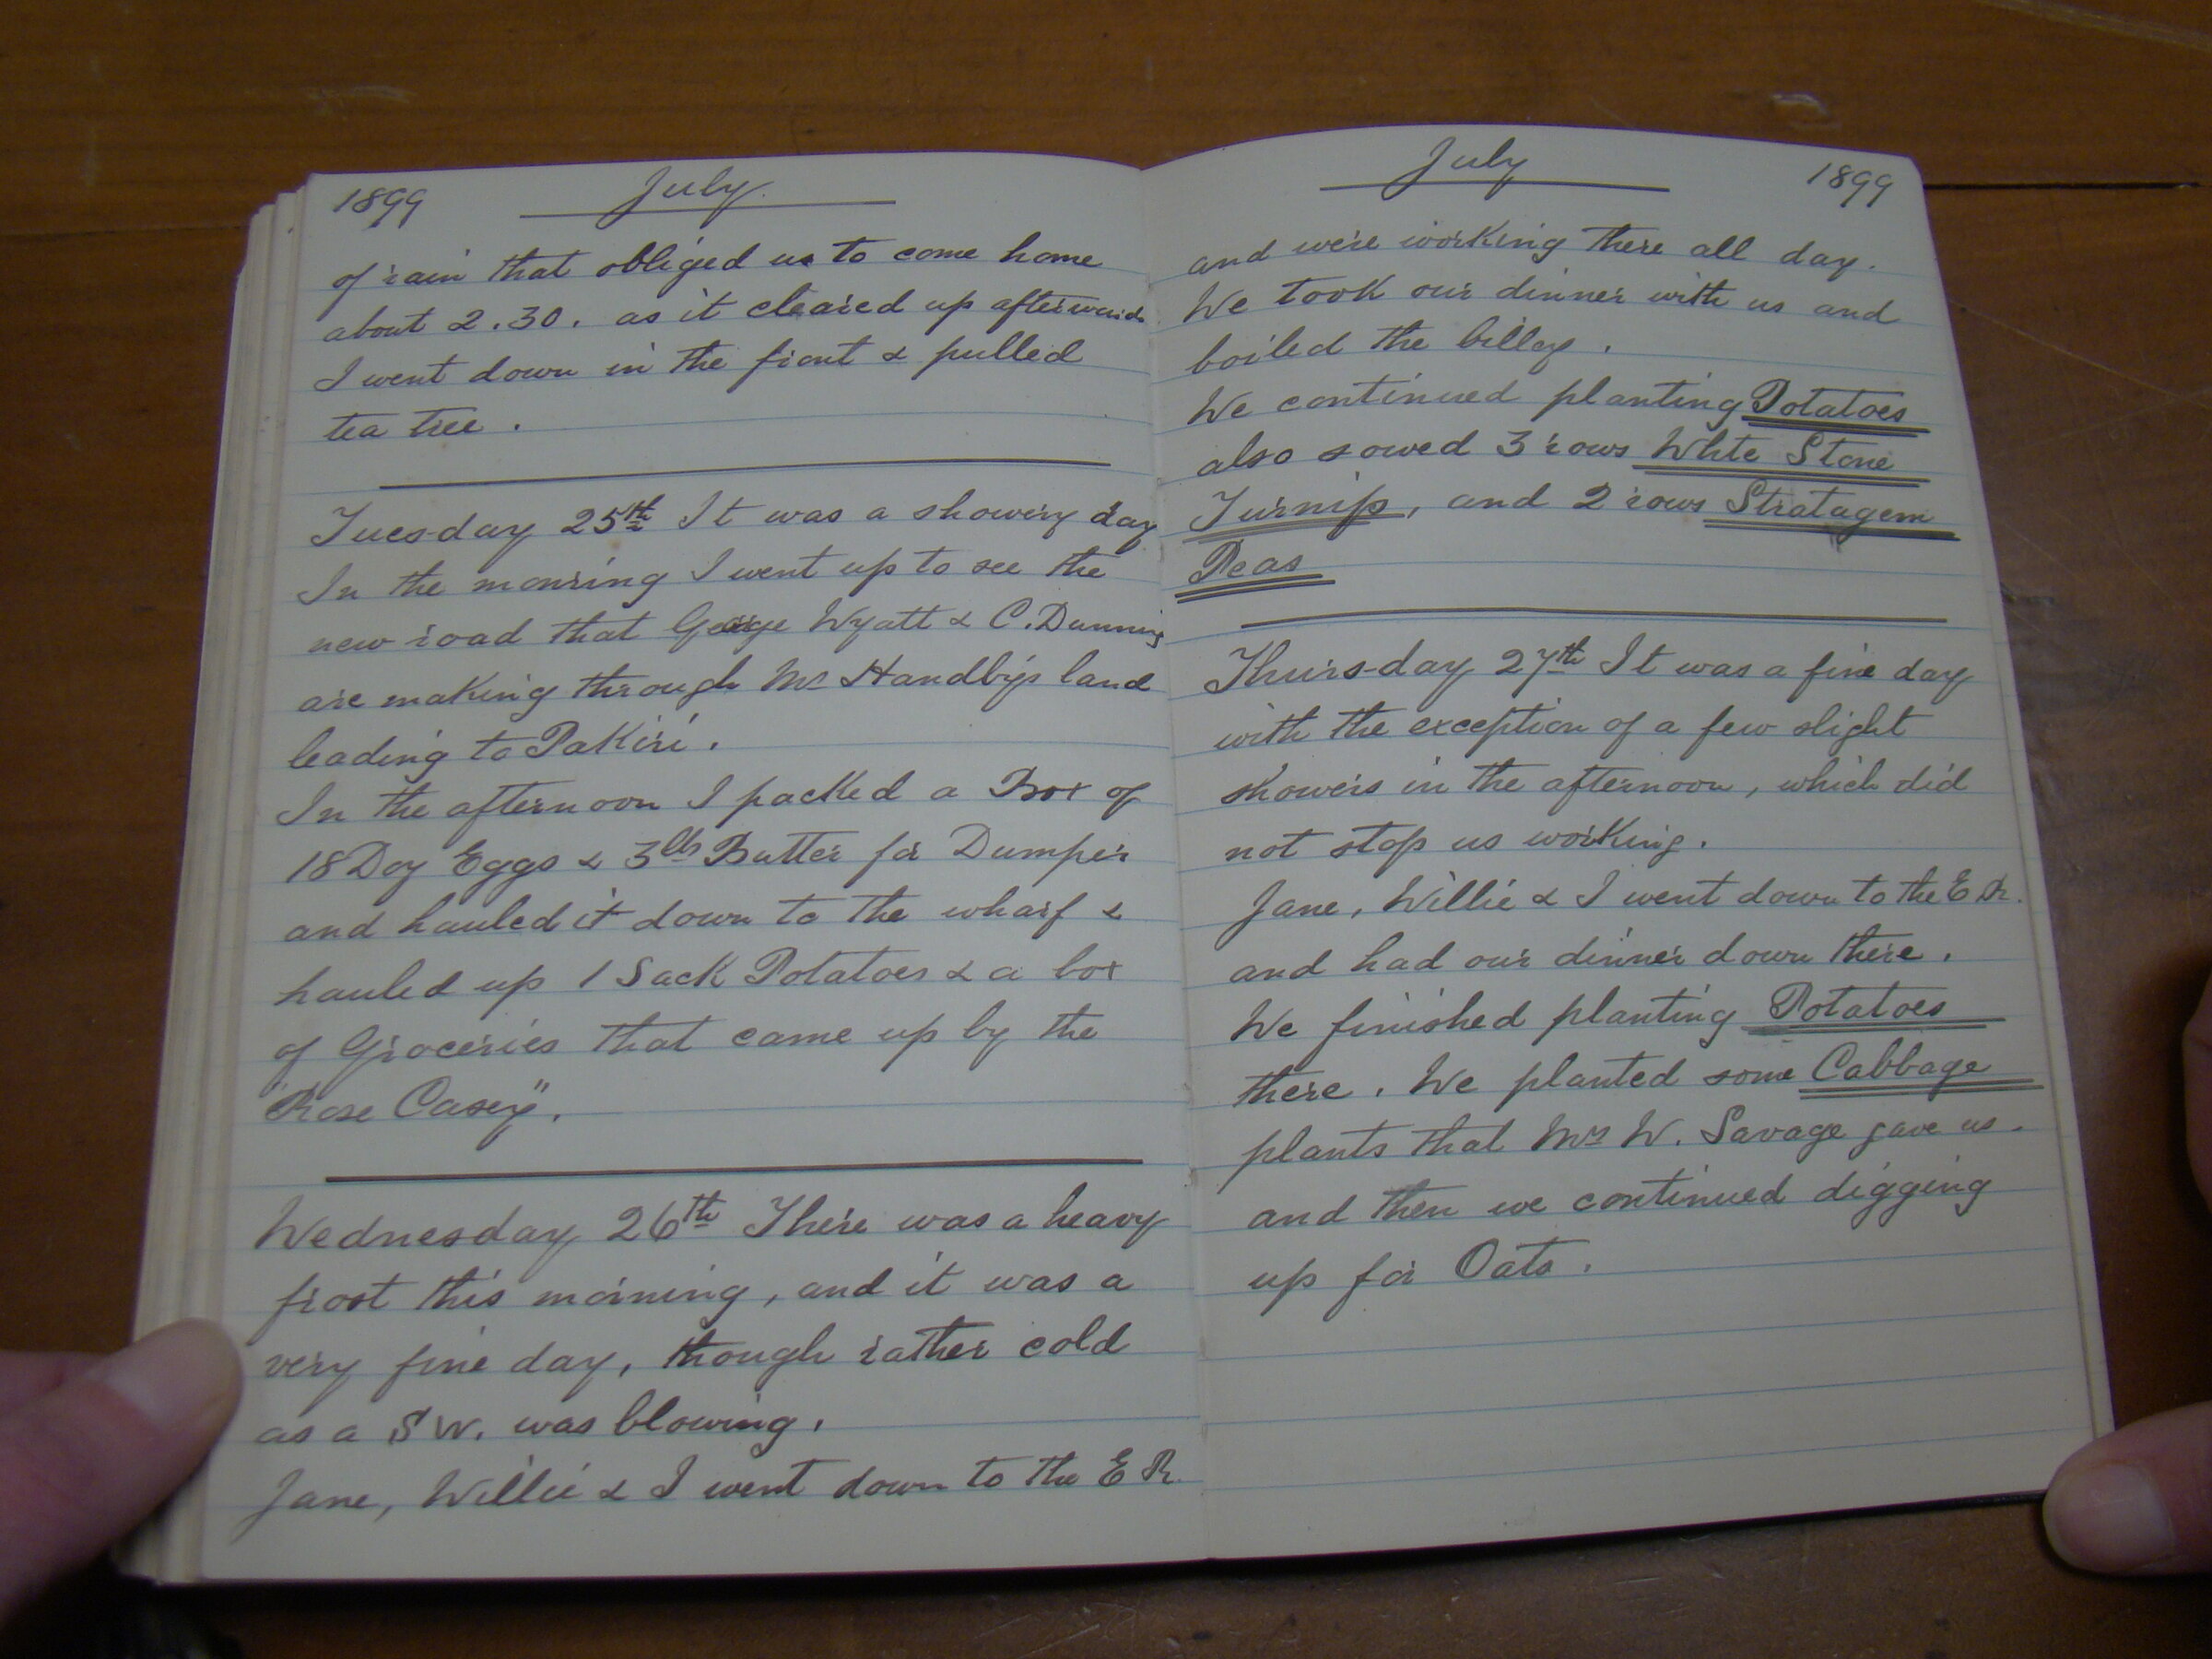 1899 July.
of rain that obliged us to come home
about 2.30. as it cleared up afterwards
I went down in the front & pulled
tea tree.
Tuesday 25th It was a showery day
In the morning I went up to see the
new road that George Wyatt & C. Dunning
are making through Mr Handby's land
leading to Pakiri.
In the afternoon I packed a Box of
18 Doz Eggs & 3lbs Butter for Dumper
and hauled it down to the wharf &
hauled up 1 Sack Potatoes & a box
of Groceries that came up by the
"Rose Casey".
Wednesday 26th There was a heavy
frost this morning, and it was a
very fine day, though rather cold
as a S W. was blowing.
Jane, Willie & I went down to the E R.
July 1899
and were working there all day.
We took our dinner with us and
boiled the billy.
We continued planting Potatoes
also sowed 3 rows Whte Stone
Turnips, and 2 rows Stratagem
Peas
Thursday 27th It was a fine day
with the exception of a few slight
showers in the afternoon, which did
not stop us working.
Jane, Willie & I went down to the E R.
and had our dinner down there.
We finished planting Potatoes
there. We planted some Cabbage
plants that Mrs W. Savage gave us.
and then we continued digging
up for Oats.